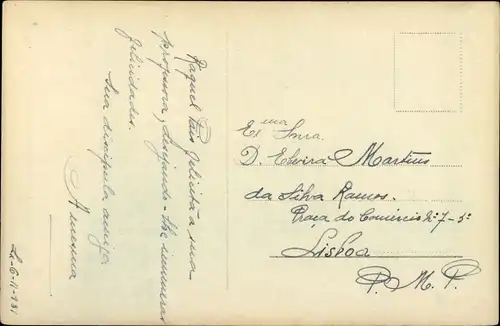 Raquel Pais felicita a sua
professora, desejando-lhe inumeras
felicidades.
Sua discipula amiga
Lx-6-11-931
Ex ma Snra.
D. Elvira Martins
da Silva Ramos.
Praça do Comércio Nº 7-3º
Lisbôa
P. M. P.